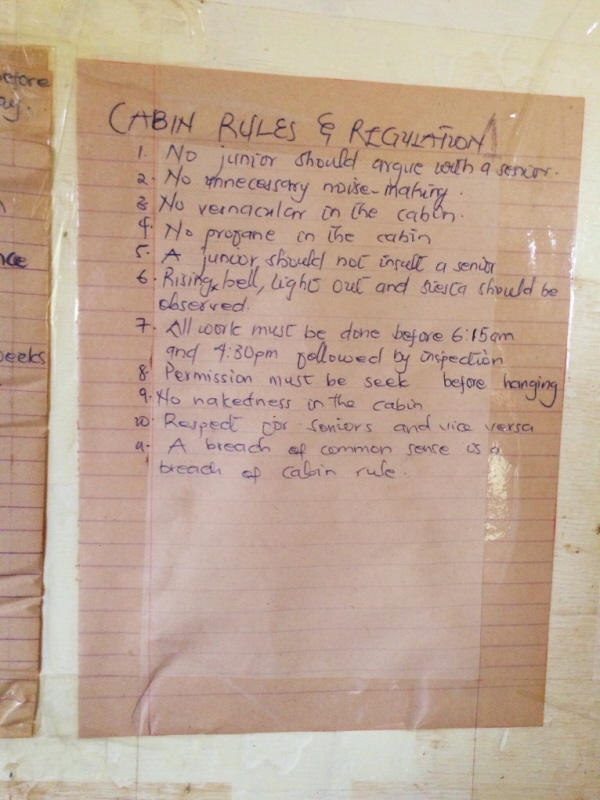 efore
ay.
nce
peeks
CABIN RULES & REGULATION
1. No junior should argue with a senior.
2. No unnecessary noise-making.
3 No vernacular in the cabin.
4. No profane in the cabin
5. A junior should not insult a senior
6. Rising bell, light out and siesta should be
observed.
7. All work must be done before 6:15am
and 4:30pm followed by inspection
8. Permission must be seek before hanging
9. No nakedness in the cabin
10. Respect for seniors and vice versa
11. A breach of common sense is a
breach of cabin rule.